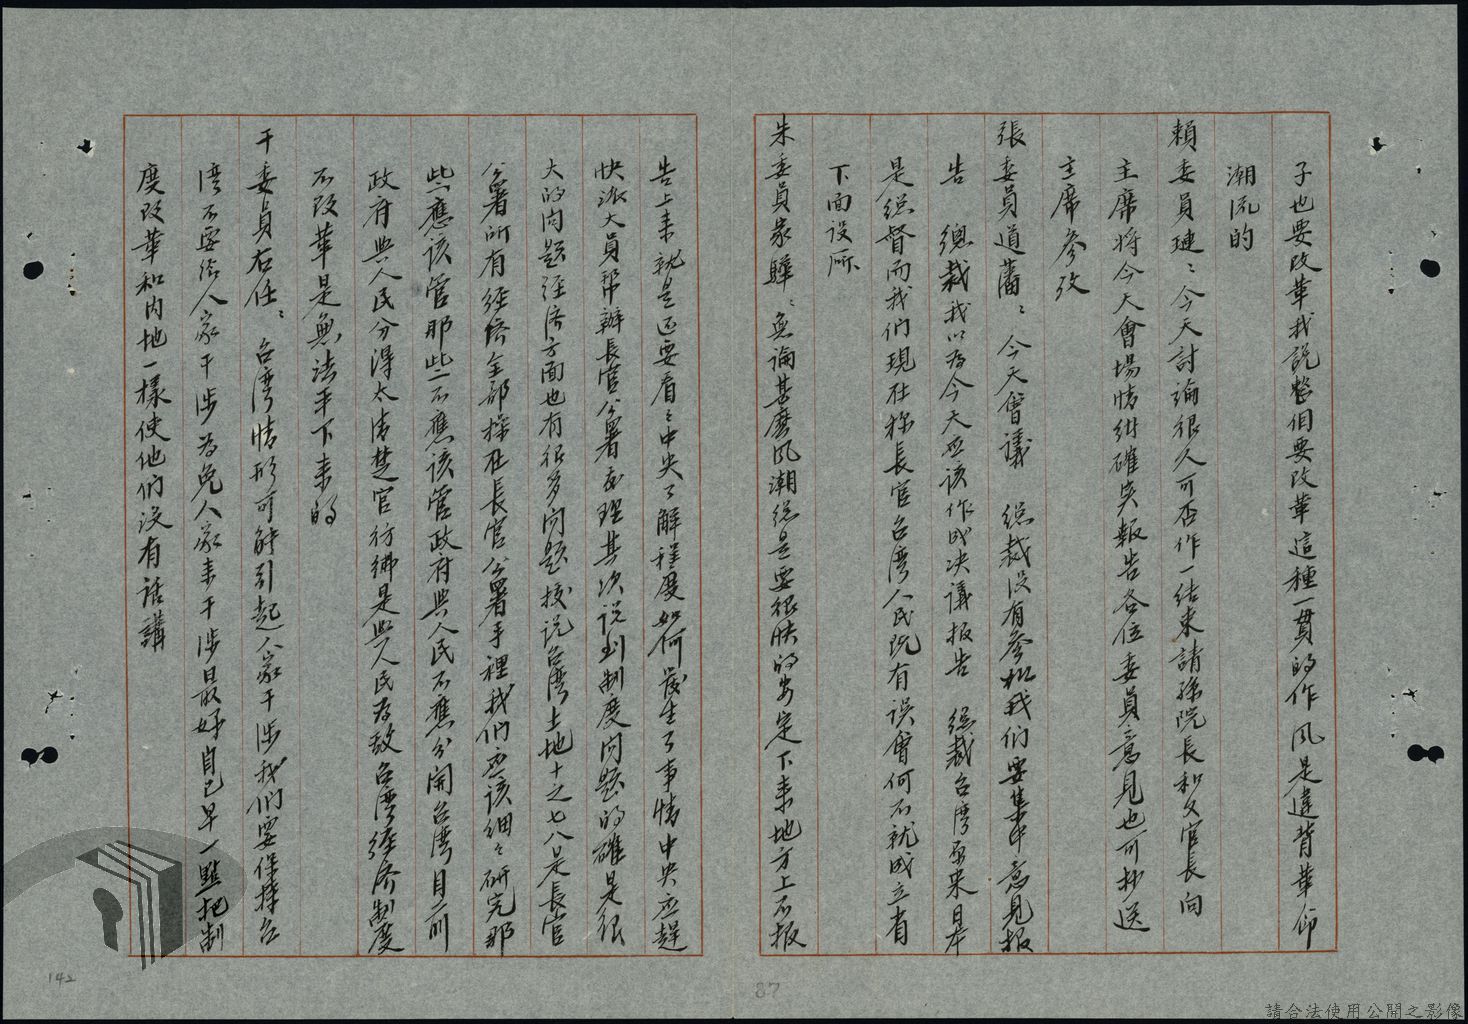 子也要改革我說整個要改革這種一貫的作風是違背革命
潮流的
賴委員璉：今天討論很久可否作一結束請孫院長和文官長向
主席將今天會場情形確實報告各位委員意見也可抄送
主席參攷
張委員道藩：今天會議　總裁沒有參加我們要集中意見報
告　總裁我以為今天應該作成决議报告　總裁台湾原來日本
是總督而我們現在称長官台湾人民既有误會何不就成立省
下面设所
朱委員家驊：無論甚麽風潮總是要很快的安定下来地方上不报
告上来就是还要看看中央了解程度如何發生了事情中央应趕
快派大員帮辦長官公署處理其次说到制度问题的確是很
大的问题经濟方面也有很多问题按说台湾土地十之七八是長官
公署所有经濟全部操在長官公署手裡我們应该细细研究那
些應该管那些不應该管政府與人民不應分開台湾目前
政府與人民分得太清楚官彷彿是與人民為敌台湾经济制度
不改革是無法平下来的
于委員右任：台湾情形可能引起人家干涉我們要保持台
湾不要给人家干涉為免人家来干涉最好自己早一點把制
度改革和内地一樣使他們沒有话講
142
87
請合法使用公開之影像